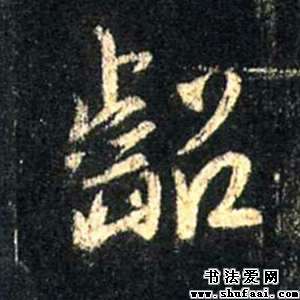 龆
书法爱网
www.shufaai.com